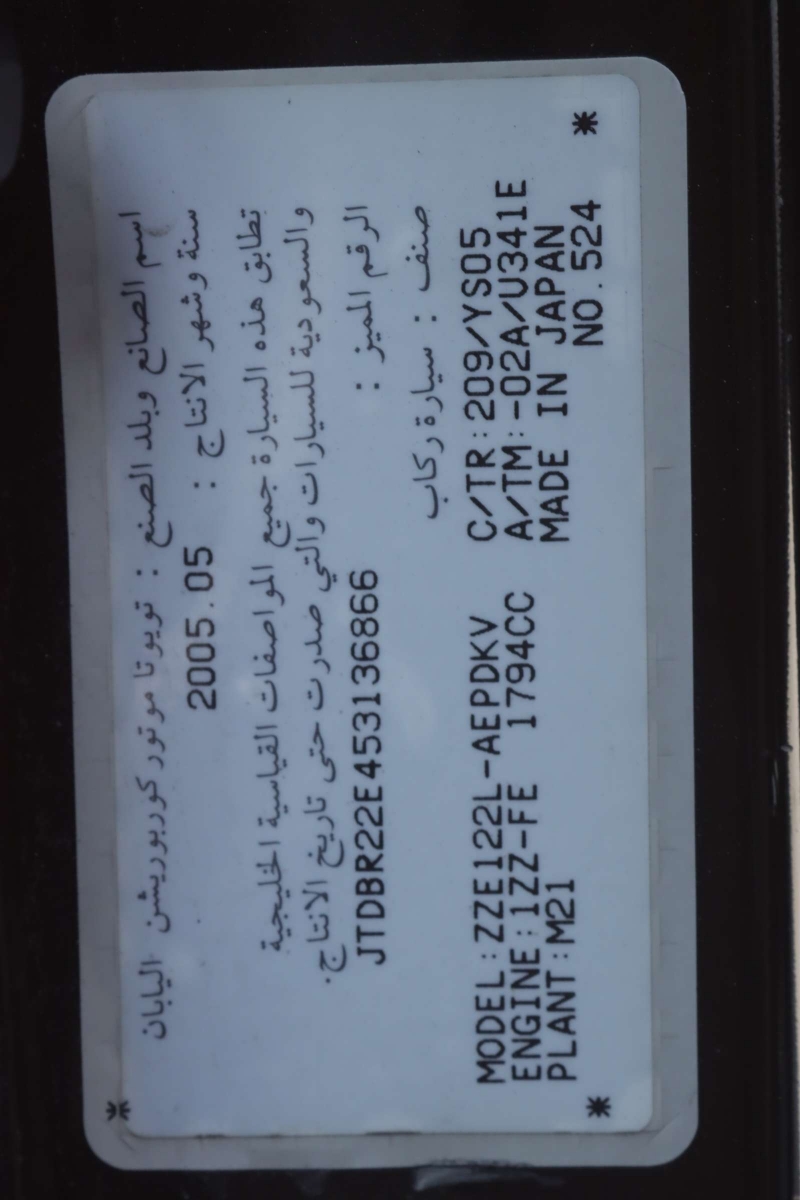 اسم الصانع وبلد الصنع : تويوتا موتور كوربوريشن اليابان
سنة وشهر الانتاج : 2005.05
تطابق هذه السيارة جميع المواصفات القياسية الخليجية
والسعودية للسيارات والتي صدرت حتى تاريخ الانتاج.
الرقم المميز : JTDBR22E453136866
صنف : سيارة ركاب
MODEL:ZZE122L-AEPDKV C/TR:209/YS05
ENGINE:1ZZ-FE 1794CC A/TM:-02A/U341E
PLANT:M21 MADE IN JAPAN
NO.524